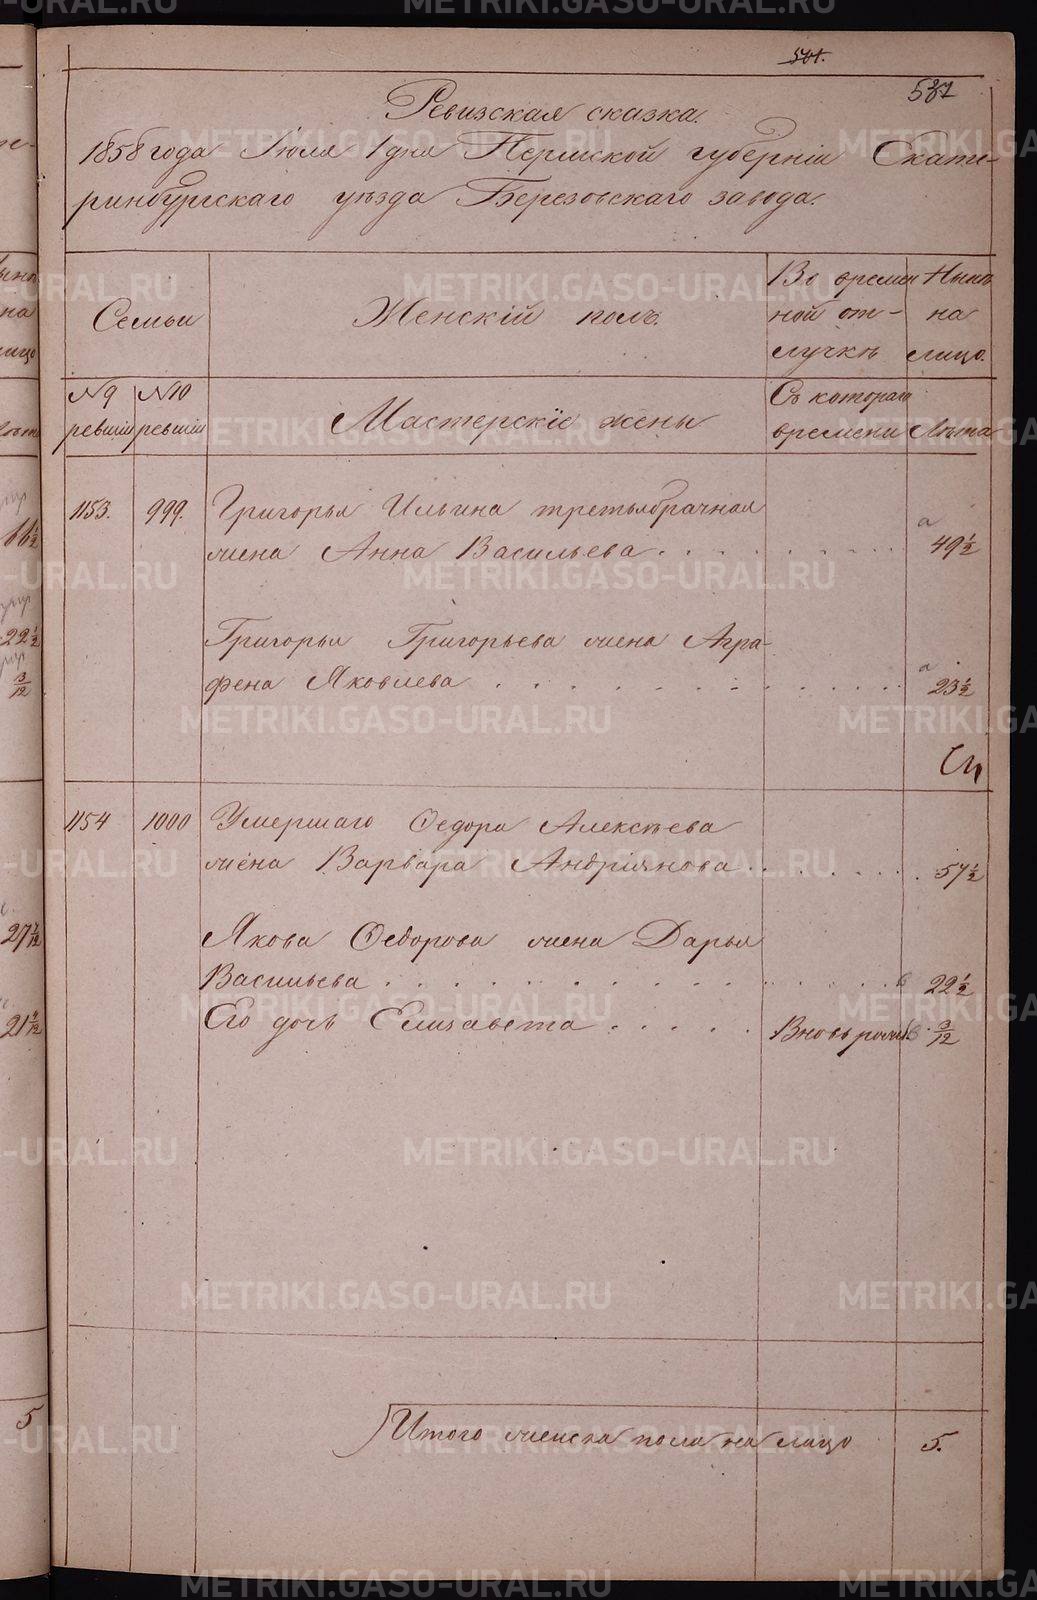 501.
587
Ревизская сказка.
1858 года Іюля 1 дня Пермской губерніи Екате-
ринбургскаго уѣзда Березовскаго завода.
Семьи
Женскій полъ.
Во времен
ной от-
лучкѣ
Нынѣ
на
лицо.
№ 9 ревизіи
№ 10 ревизіи
Мастерскіе жены
Съ котораго
времени
Лѣта
1153. 999. Григорья Ильина третьябрачная
жена Анна Васильева . . . . . . . . . 49 ½
Григорья Григорьева жена Агра-
фена Яковлева . . . . . . . . . . . . 23 ½
1154 1000 Умершаго Ѳедора Алексѣева
жена Варвара Андріянова . . . . . . 57 ½
Якова Ѳедорова жена Дарья
Васильева . . . . . . . . . . . . . . 22 ½
Его дочь Елизавета . . . . . Вновь рожд. 9/12
Итого женска пола на лицо 5.
66 ½
22 ½
3/12
27 7/12
5
METRIKI.GASO-URAL.RU